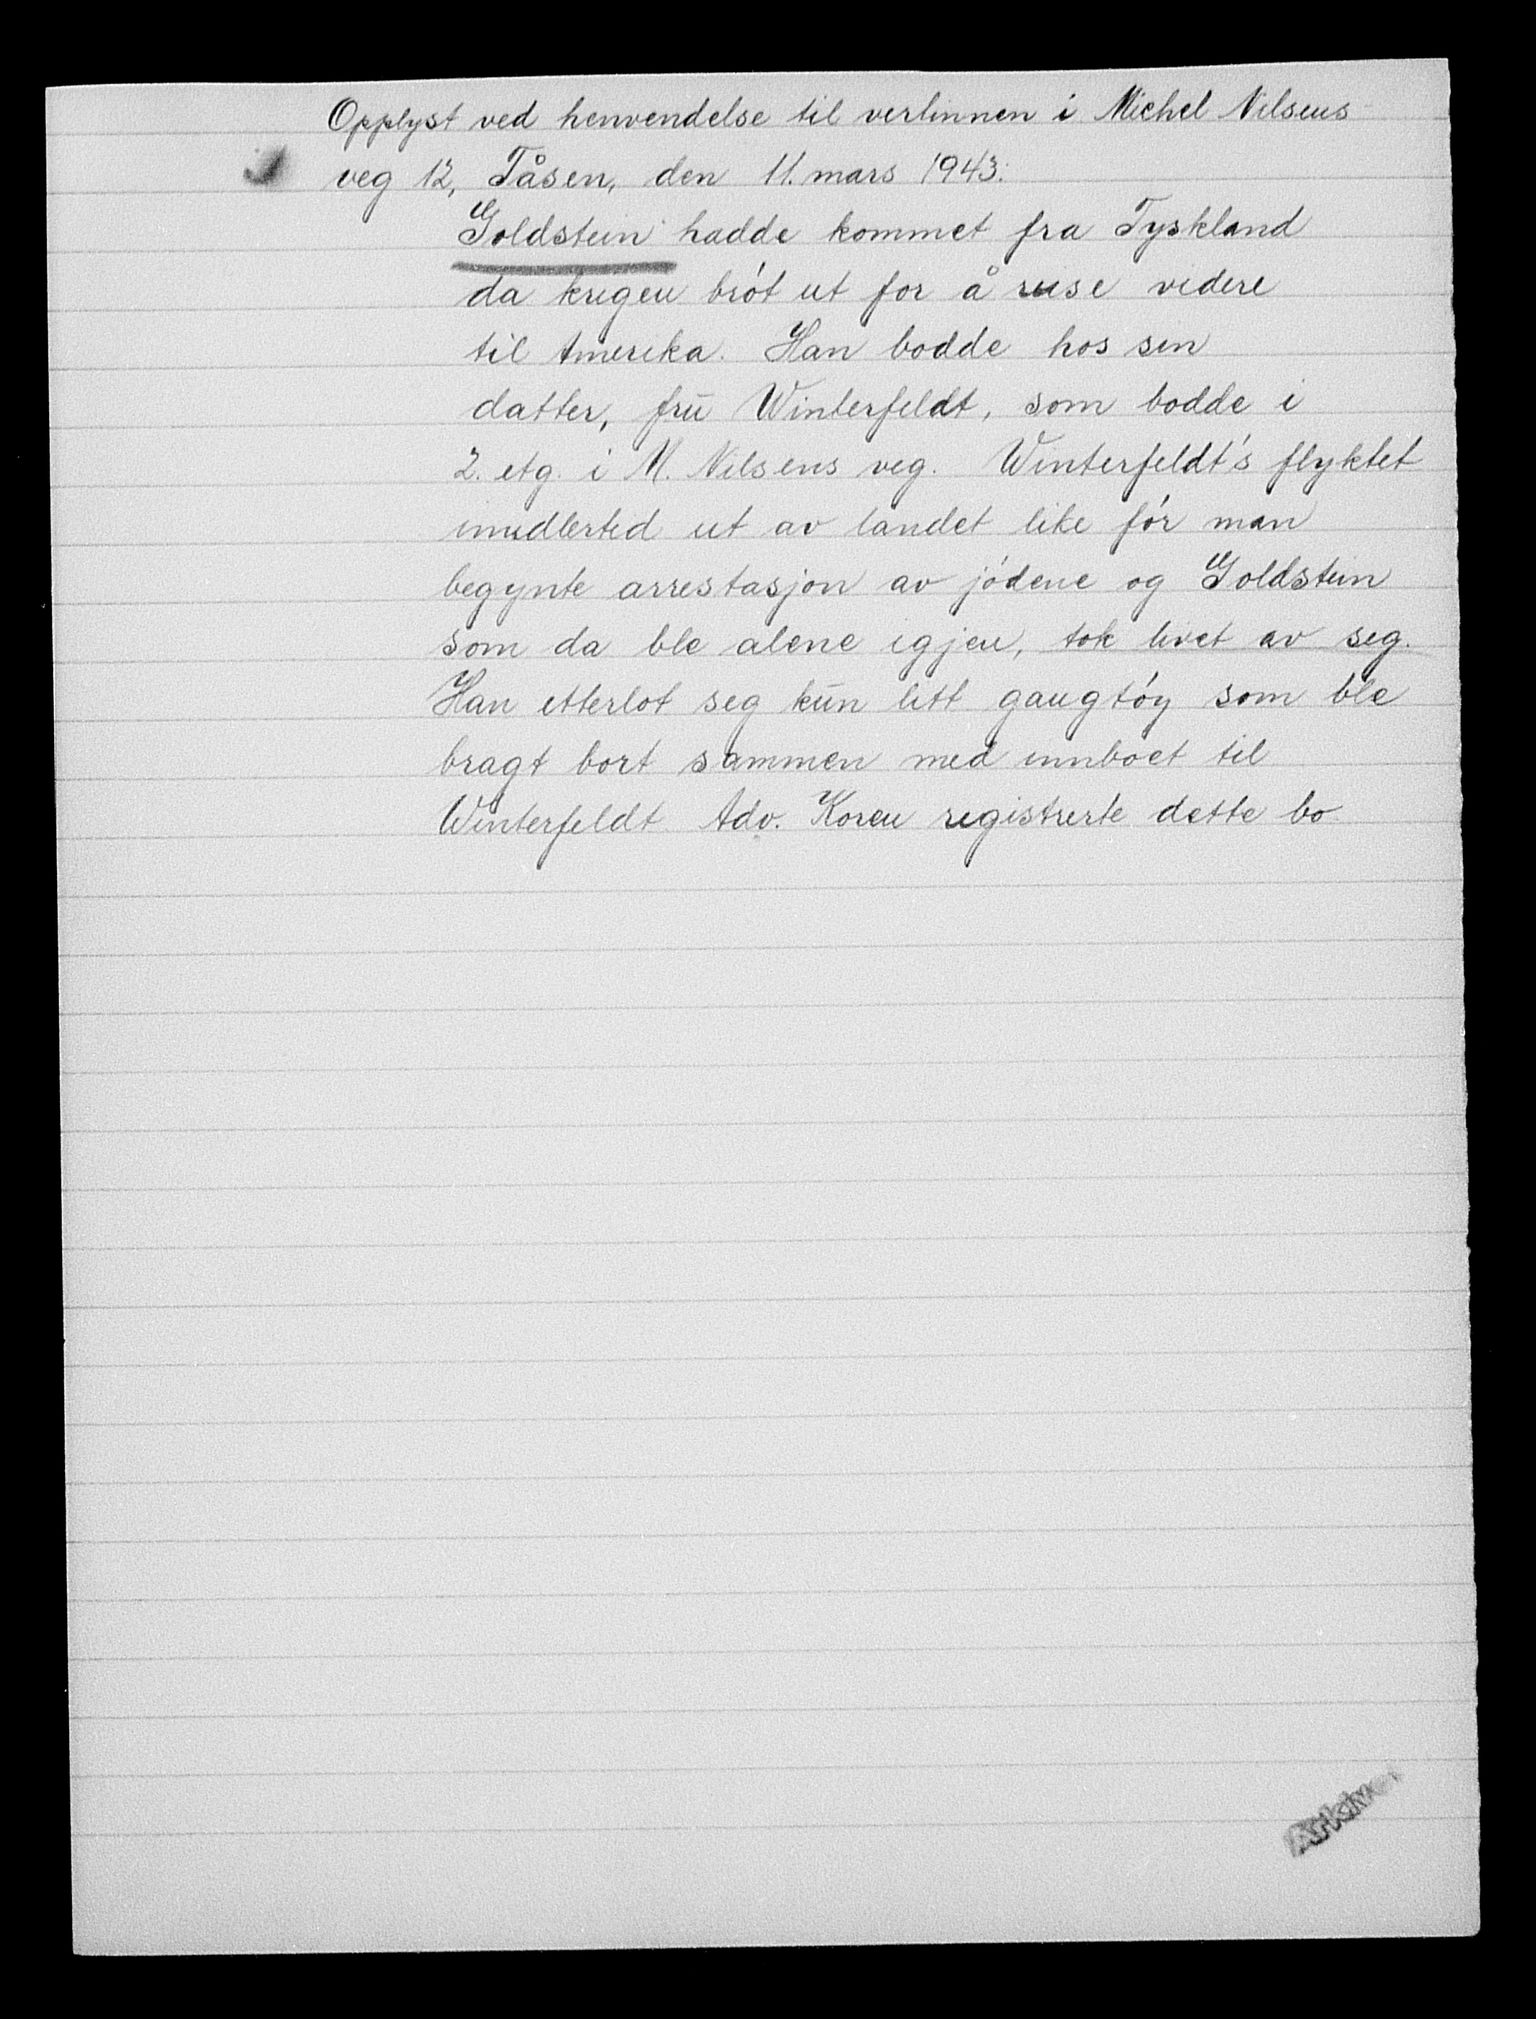 Opplyst ved henvendelse til vertinnen i Michel Nilsens
veg 12, Tåsen, den 11. mars 1943.
Goldstein hadde kommet fra Tyskland
da krigen brøt ut for å reise videre
til Amerika. Han bodde hos sin
datter, fru Winterfeldt, som bodde i
2. etg. i M. Nilsens veg. Winterfeldt's flyktet
imidlertid ut av landet like før man
begynte arrestasjon av jødene og Goldstein
som da ble alene igjen, tok livet av seg.
Han etterlot seg kun litt gangtøy som ble
bragt bort sammen med innboet til
Winterfeldt. Adv. Koren registrerte dette bo